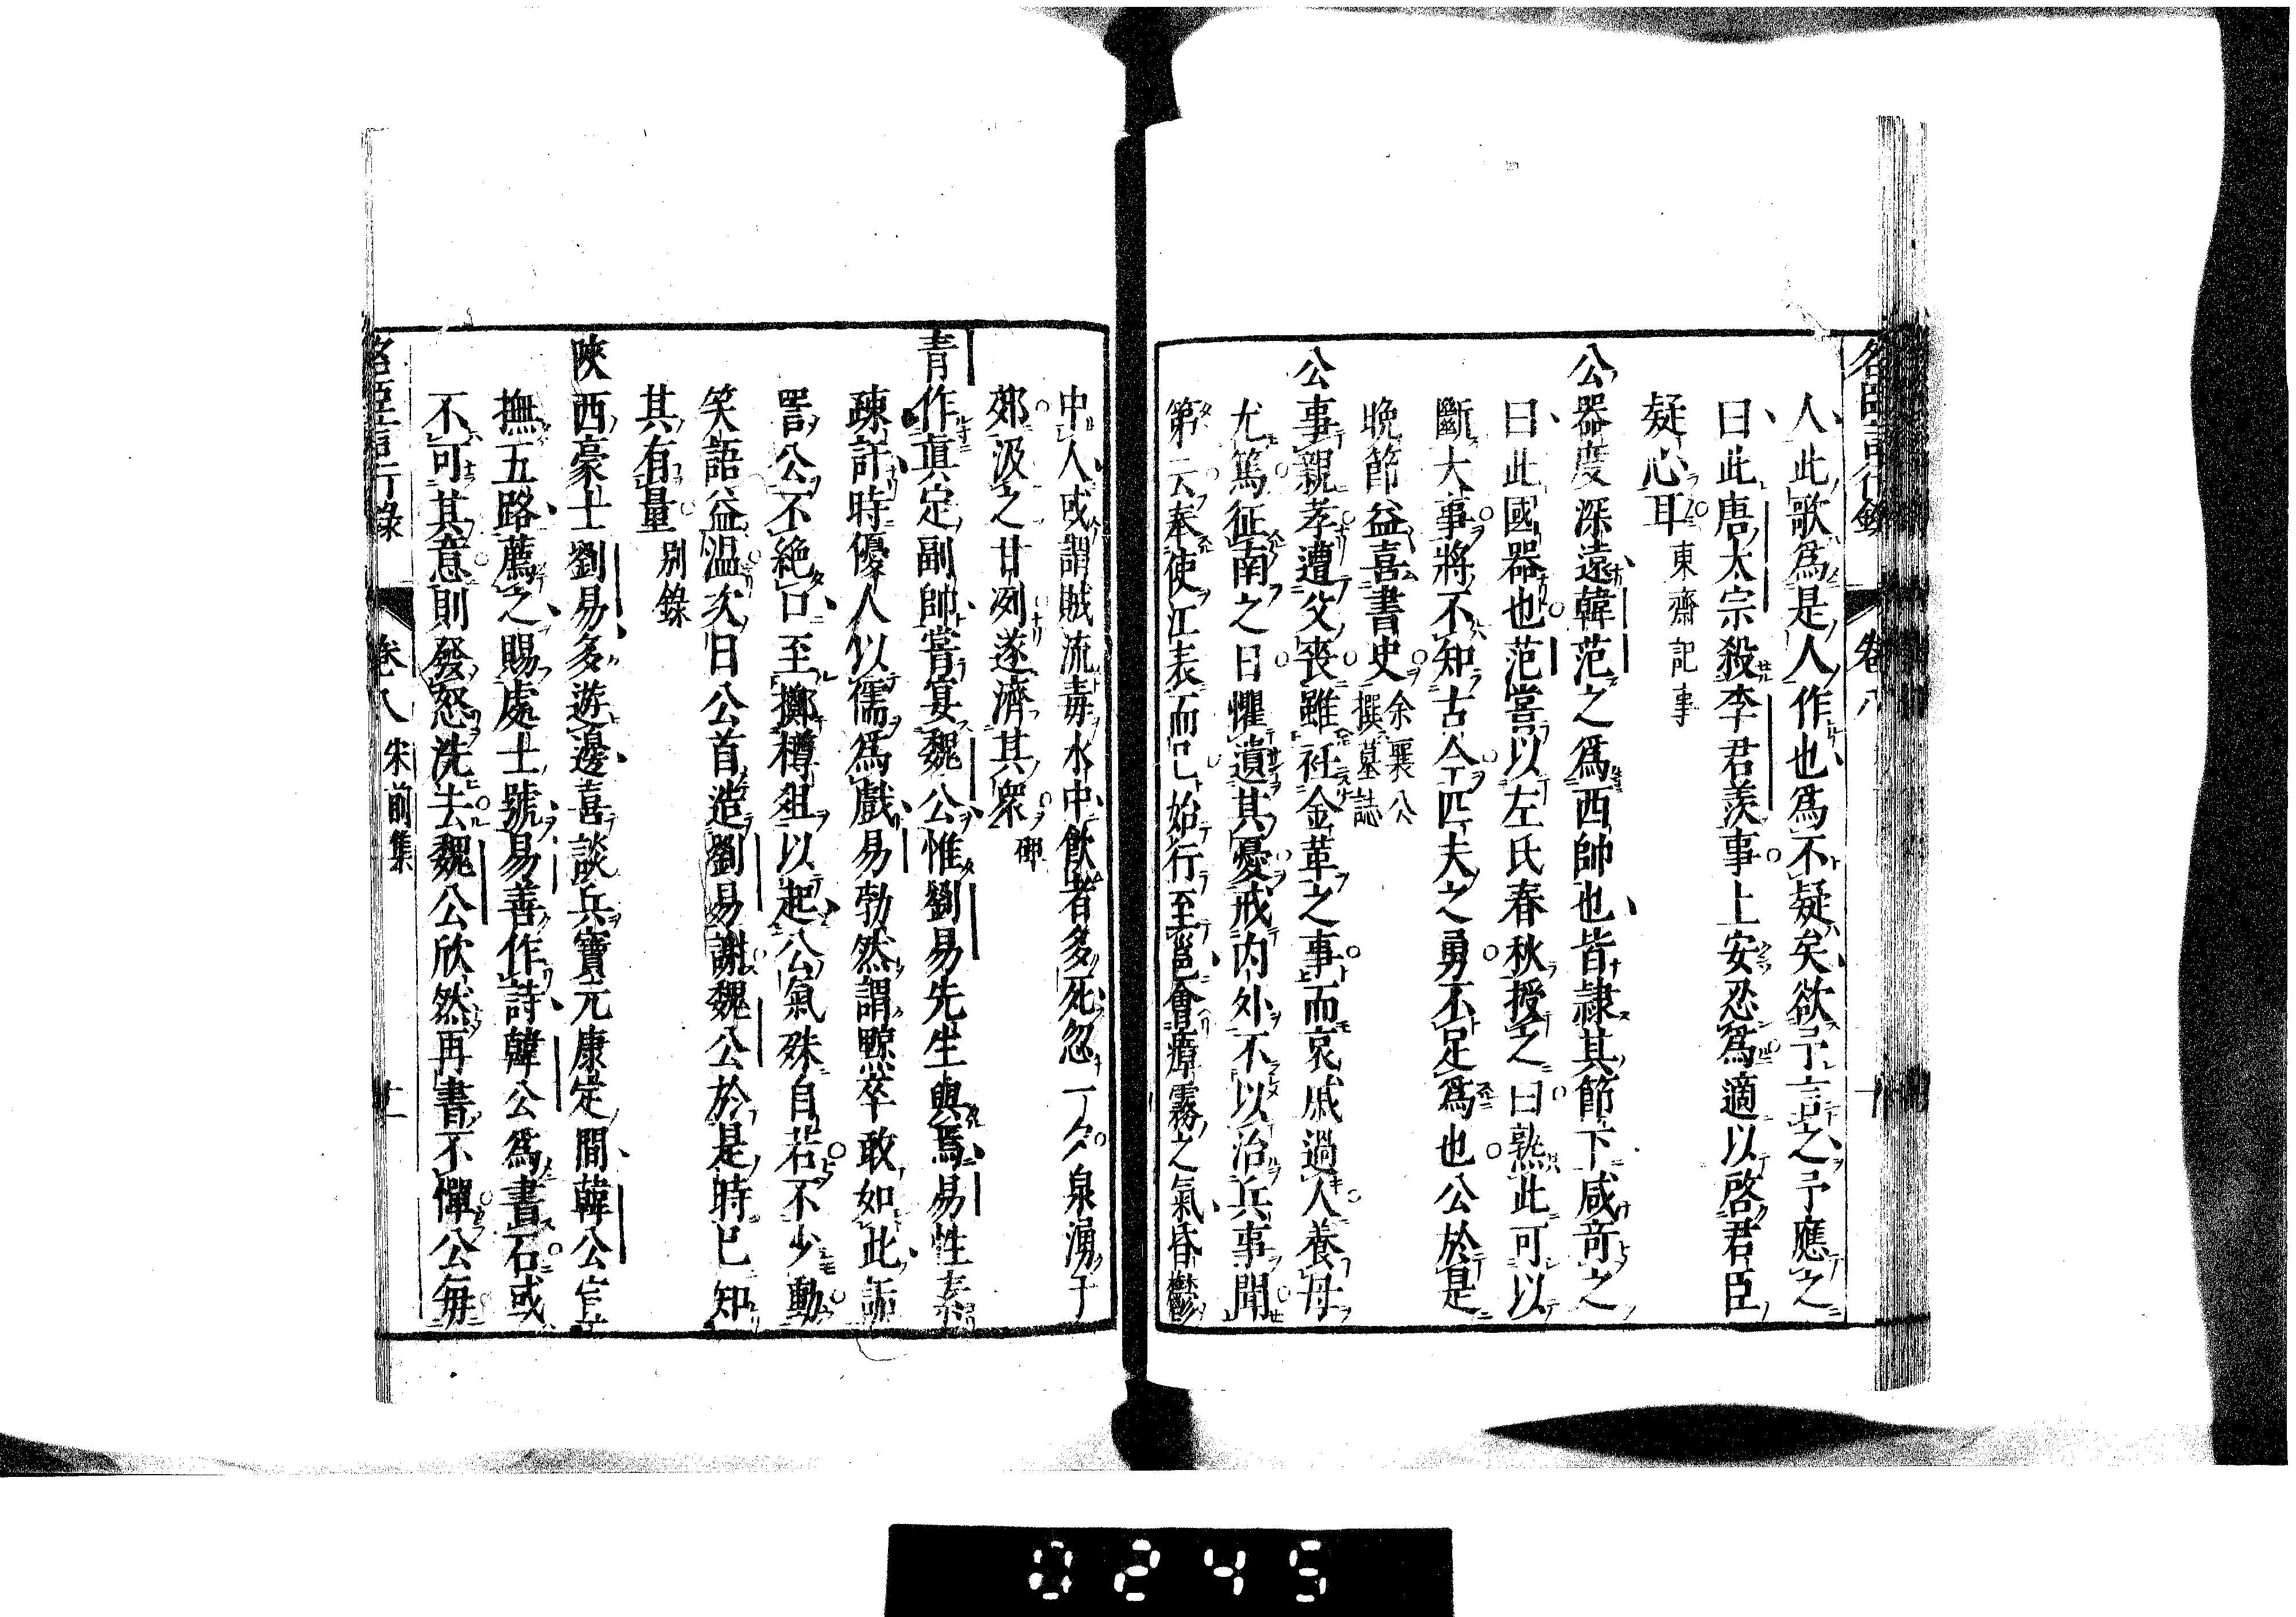 名臣言行錄 卷八 十
人此歌爲是人作也爲不疑矣欲予言之予應之
曰此唐太宗殺李君羨事上安忍爲適以啓君臣
疑心耳東齋記事
公器度深遠韓范之爲西帥也皆隷其節下咸竒之
曰此國器也范嘗以左氏春秋授之曰熟此可以
斷大事將不知古今匹夫之勇不足爲也公於是
晩節益喜書史余襄公撰墓誌
公事親孝遭父喪雖衽金革之事而哀戚過人養母
尤篤征南之日懼遺其憂戒内外不以治兵事聞
第云奉使江表而已始行至邕會瘴霧之氣昏鬱
中人或謂賊流毒水中飲者多死忽一夕泉湧于
郊汲之甘冽遂濟其衆碑
青作眞定副帥嘗宴魏公惟劉易先生與焉易性素
疎訐時優人以儒爲戲易勃然謂黥卒敢如此詬
詈公不絶口至擲樽俎以起公氣殊自若不少動
笑語益温次日公首造劉易謝魏公於是時已知
其有量别錄
陜西豪士劉易多遊邊喜談兵寶元康定間韓公宣
撫五路薦之賜處士號易善作詩韓公爲書石或
不可其意則發怒洗去魏公欣然再書不憚公毎
名臣言行錄 卷八 宋前集 十一
0245